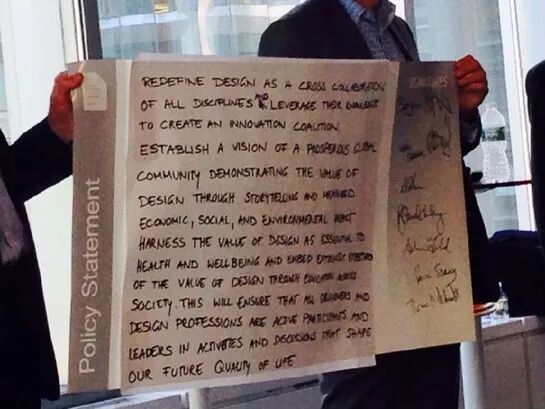 Policy Statement
REDEFINE DESIGN AS A CROSS COLLABORATION
OF ALL DISCIPLINES AND LEVERAGE THEIR KNOWLEDGE
TO CREATE AN INNOVATION COALITION.
ESTABLISH A VISION OF A PROSPEROUS GLOBAL
COMMUNITY DEMONSTRATING THE VALUE OF
DESIGN THROUGH STORYTELLING AND MEASURED
ECONOMIC, SOCIAL, AND ENVIRONMENTAL IMPACT
HARNESS THE VALUE OF DESIGN AS ESSENTIAL TO
HEALTH AND WELLBEING AND EMBED
OF THE VALUE OF DESIGN THROUGH EDUCATION ACROSS
SOCIETY. THIS WILL ENSURE THAT ALL DESIGNERS AND
DESIGN PROFESSIONS ARE ACTIVE PARTICIPANTS AND
LEADERS IN ACTIVITIES AND DISCUSSIONS THAT SHAPE
OUR FUTURE QUALITY OF LIFE